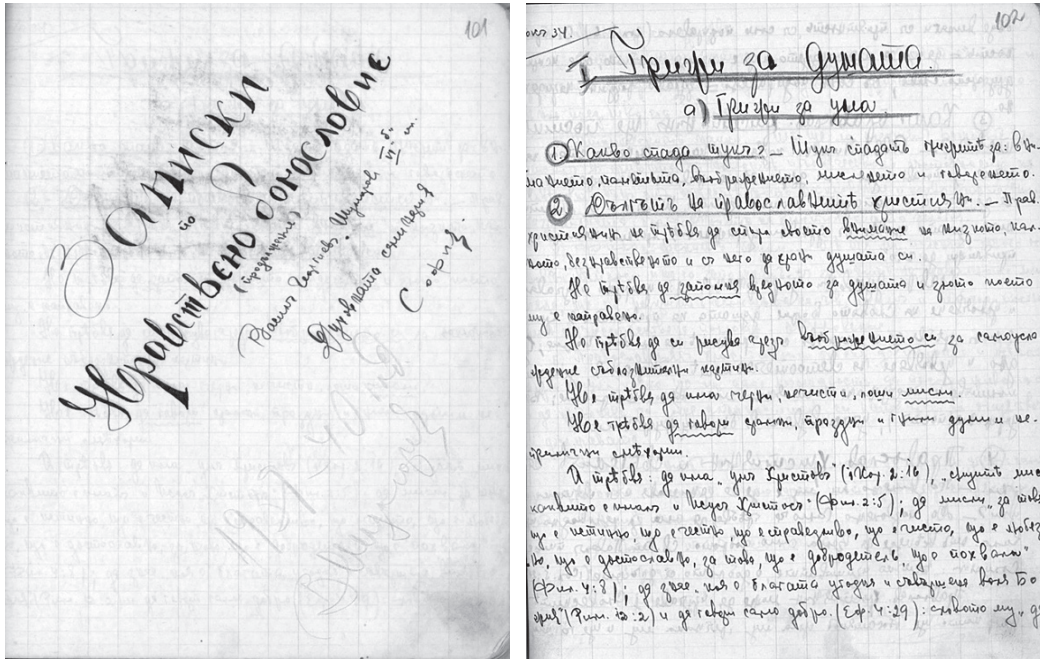 101
Записки
по
Нравствено богословие
(продължение)
Василъ Георгиевъ
VI б. кл.
Духовната семинария
София.
102
I Грижи за душата.
а) Грижи за ума
① Какво спада тукъ? – Тукъ спадатъ грижитѣ за: вни-
манието, паметьта, въображението, мисленето и говоренето.
② Дългътъ на православнитѣ християни. – Прав.
християнинъ не трѣбва да спира своето внимание на низкото, кал-
ното, безнравственото и съ него да храни душата си.
Не трѣбва да запомня вредното за душата и злото което
му е направено.
Не трѣбва да си рисува чрезъ въображението си за самоусла-
ждение съблазнителни картини.
Не трѣбва да има черни, нечисти, лоши мисли.
Не трѣбва да говори срамни, праздни и гнили думи и не-
прилични
А трѣбва: да има „умъ Христовъ" (I Кор. 2:16), „сѫщитѣ мис
каквито е ималъ и Исусъ Христосъ" (Фил. 2:5), да мисли „за това
що е истинно, що е честно, що е справедливо, що е чисто, що е любез
но, що е достославно, за това, що е добродетель, що е похвала"
(Фил. 4:8), да знае „коя е благата угодна и съвършена воля Бо-
жия" (Рим. 12:2) и да говори само добро. (Еф. 4:29): словото му „да